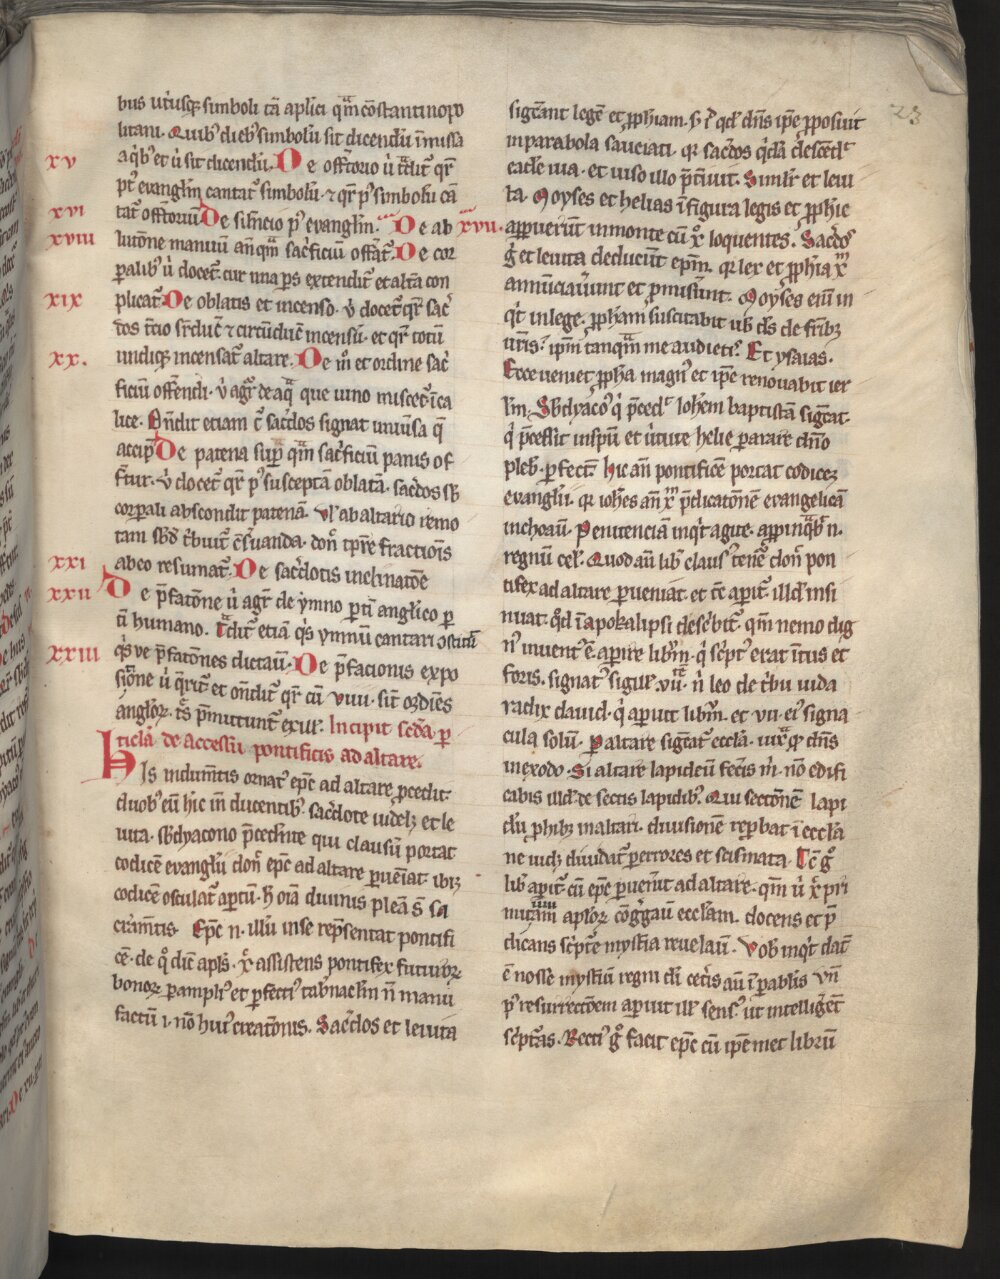 23
bus ut͛usq; simboli tā aplici q̄m cōstantinopo
litani. Quib; dieb; simbolū sit dicendū ī missa
xv
a q̇b; et ů sit dicendū. De offtorio ů t͛dit᷑ qr̄
pꝰ evangliū cantat᷑ simbolū. ⁊ qr̄ pꝰ simbolū cā
xvi
tat᷑ offtoriū De silencio pꝰ evangliū. De ab xvii.
xviii
lutōne manuū anq̄m sac͛ficiū offāt᷑. De cor
palib; ů docet᷑. cur una ps extendit᷑ et alt͛a con
xix
plicat᷑ De oblatis et incenso. ů docet᷑ qr̄ sac͛
dos t͛cio s͛r ducit᷑ ⁊ circūducit᷑ incensū. et qr̄ totū
xx.
undiq; incensat᷑ altare. De m̊ et ordine sac͛
ficiū offendi. ů agit᷑ de aq̄ que uino miscet᷑ ī ca
lice. Ondit etiam cur sac͛dos signat univ͛sa q̄
accip̄ De patena sup q̄m sac͛ficiū panis of
fert᷑. ů docet᷑ qr̄ pꝰ susceptam oblatā. sac͛dos s͛b
corpali abscondit patenā. Ul ab altario remo
tam s͛bd̄ t͛buit ɔs͛uanda. don̄ tp̄re fractiōis
xxi
ab eo resumat᷑. De sac͛dotis inclinatōe
xxii
De p̄fatōne ů agit᷑ de ymno partī anglico par
tī humano. T͛dit᷑ etiā q̇s ynmū cantari ɔstituit
xxiii
q̇sve p̄fatōnes dictau͛. De p̄facionis expo
sitōne ů q̄rit᷑ et ondit᷑ qr̄ cū viiii. sīt ordīes
anglor̄. tres p̄mittunt᷑ ex his. Incipit sc̄da p
ticla de accessu pontificis ad altare.
His indum̄tis ornat᷑ epc̄ ad altare pcedit.
duob; eū hīc īn ducentib;. sac͛dote uidelz et le
uita. s͛bdyacono p̄cedente qui clausum portat
codicē evanglii don̄ epc̄ ad altare pueniat ibiq;
codicē osculat᷑ aptū. H̄ oīa diuinis plena s̄ sa
cram̄tis. Epc̄ n̄. illū in se rep̄sentat pontifi
cē. de q̊ dic̄ apls. x̄ assistens pontifex futuroꝝ
bonoꝝ. p ampliꝰ et pfectiꝰ tab͛naclm nō manu
factū .i. nō huiꝰ creatōnis. Sac͛dos et leuita
sigc̄ant legē et pphiam. s; ⁊ qd̄ dn̄s ipe pposuit
in parabola sauciati. qr sac͛dos q̇dā descēd͛et
eadē uia. et uiso illo p̄t͛iuit. Simil̄r et leui
ta. Moyses et helias ī figura legis et pphie
apparuerūt in monte cū x̄ loquentes. Sac͛dos
ḡ et leuita deducūt epm̄. qr lex et pphīa x̄m
annūciauerūt et pmiserūt. Moyses enī in
q̇t in lege. ppham suscitabit uob ds̄ de frīb;
ur̄is. ipm̄ tanquā me audietis. Et ysaias.
Ecce ueniet ppha magnꝰ et ipe renouabit ier
lm̄. S͛bdyacoꝰ q̇ p̄ced͛t iohem baptistā sigc̄at.
q̇ p̄cessit in spū et ůtute helie parare dn̄o
pleb̄. pfectā. Hic an̄ pontificē portat codicez
evanglii. qr iohes an̄ x̄m p̄dicatōnē evangelicā
inchoau͛. Penitenciā inq̇t agite. appinq̄b n̄.
regnū cel. Quod aū lib clausꝰ tenet᷑ don̄ pon
tifex ad altare pueniat. et tc̄ apit᷑. illd insi
nuat. qd̄ ī apokalipsi describit᷑. qm̄ nemo dig
nꝰ inuent᷑ ē aprire librm̄. q̇ scptꝰ erat intus et
foris. signatꝰ sigill. vii. n̄ leo de tribu iuda
radix dauid. q̇ apuit librm̄. et vii eiꝰ signa
cula soluit. P altare sigc̄at᷑ ecclā. iuxᵃ qd̄ dn̄s
in exodo. Si altare lapideū fecis m̄. nō edifi
cabis illd de sectis lapidib;. Qui sectōnē lapi
dū phibz in altari. diuisionē repbat ī ecclā
ne uidz diuidat᷑ per errores et scismata. Tc̄ ḡ
lib apit᷑ cū epc̄ puenit ad altare. qm̄ ů x̄ pri
mitiuam aplor̄ cōgg̊au͛ ecclam. docens et p̄
dicans scpture mystia reuelau͛. Vob inq̇t datū
ē nosse mystiū regni di cet͛is aū ī pablis. Un̄
pꝰ resurrectōem apuit ill sensū. ut intelligēt
scpt͛as. Recte ḡ facit epc̄ cū ipemet librū